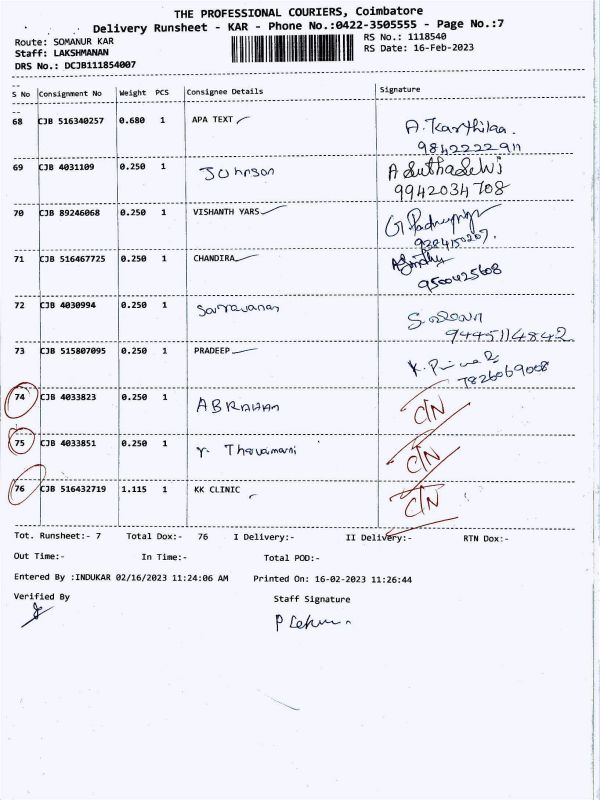 THE PROFESSIONAL COURIERS, Coimbatore
Delivery Runsheet - KAR - Phone No.:0422-3505555 - Page No.:7
Route: SOMANUR KAR
RS No.: 1118540
Staff: LAKSHMANAN
RS Date: 16-Feb-2023
DRS No.: DCJB111854007
S No Consignment No Weight PCS Consignee Details Signature
68 CJB 516340257 0.680 1 APA TEXT A. Karthikaa.
9842222911
69 CJB 4031109 0.250 1 Johnson A Suthaselvi
9942034708
70 CJB 89246068 0.250 1 VISHANTH YARS
9384150207.
71 CJB 516467725 0.250 1 CHANDIRA
9500425608
72 CJB 4030994 0.250 1 Saravanan
9445114842
73 CJB 515807095 0.250 1 PRADEEP
7826069008
74 CJB 4033823 0.250 1 ABRAHAN C/N
75 CJB 4033851 0.250 1 r. Thavamani C/N
76 CJB 516432719 1.115 1 KK CLINIC C/N
Tot. Runsheet:- 7 Total Dox:- 76 I Delivery:- II Delivery:- RTN Dox:-
Out Time:- In Time:- Total POD:-
Entered By :INDUKAR 02/16/2023 11:24:06 AM Printed On: 16-02-2023 11:26:44
Verified By Staff Signature